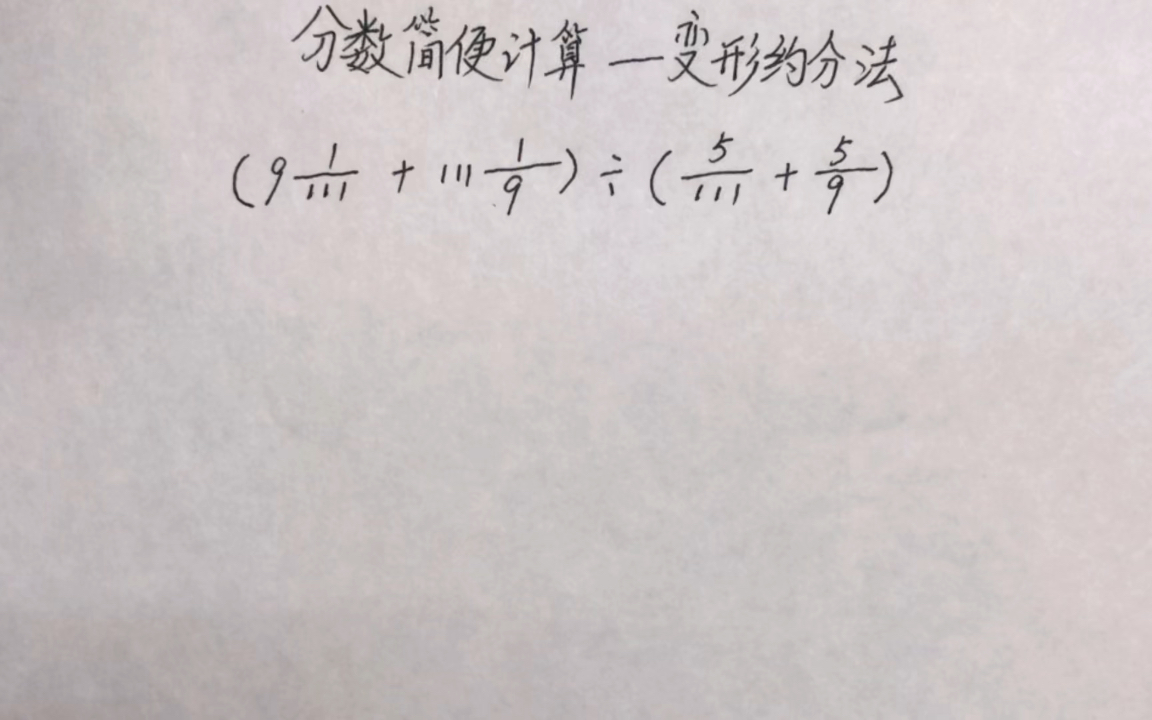 分数简便计算—变形约分法
(9 1/111 + 111 1/9) ÷ (5/111 + 5/9)